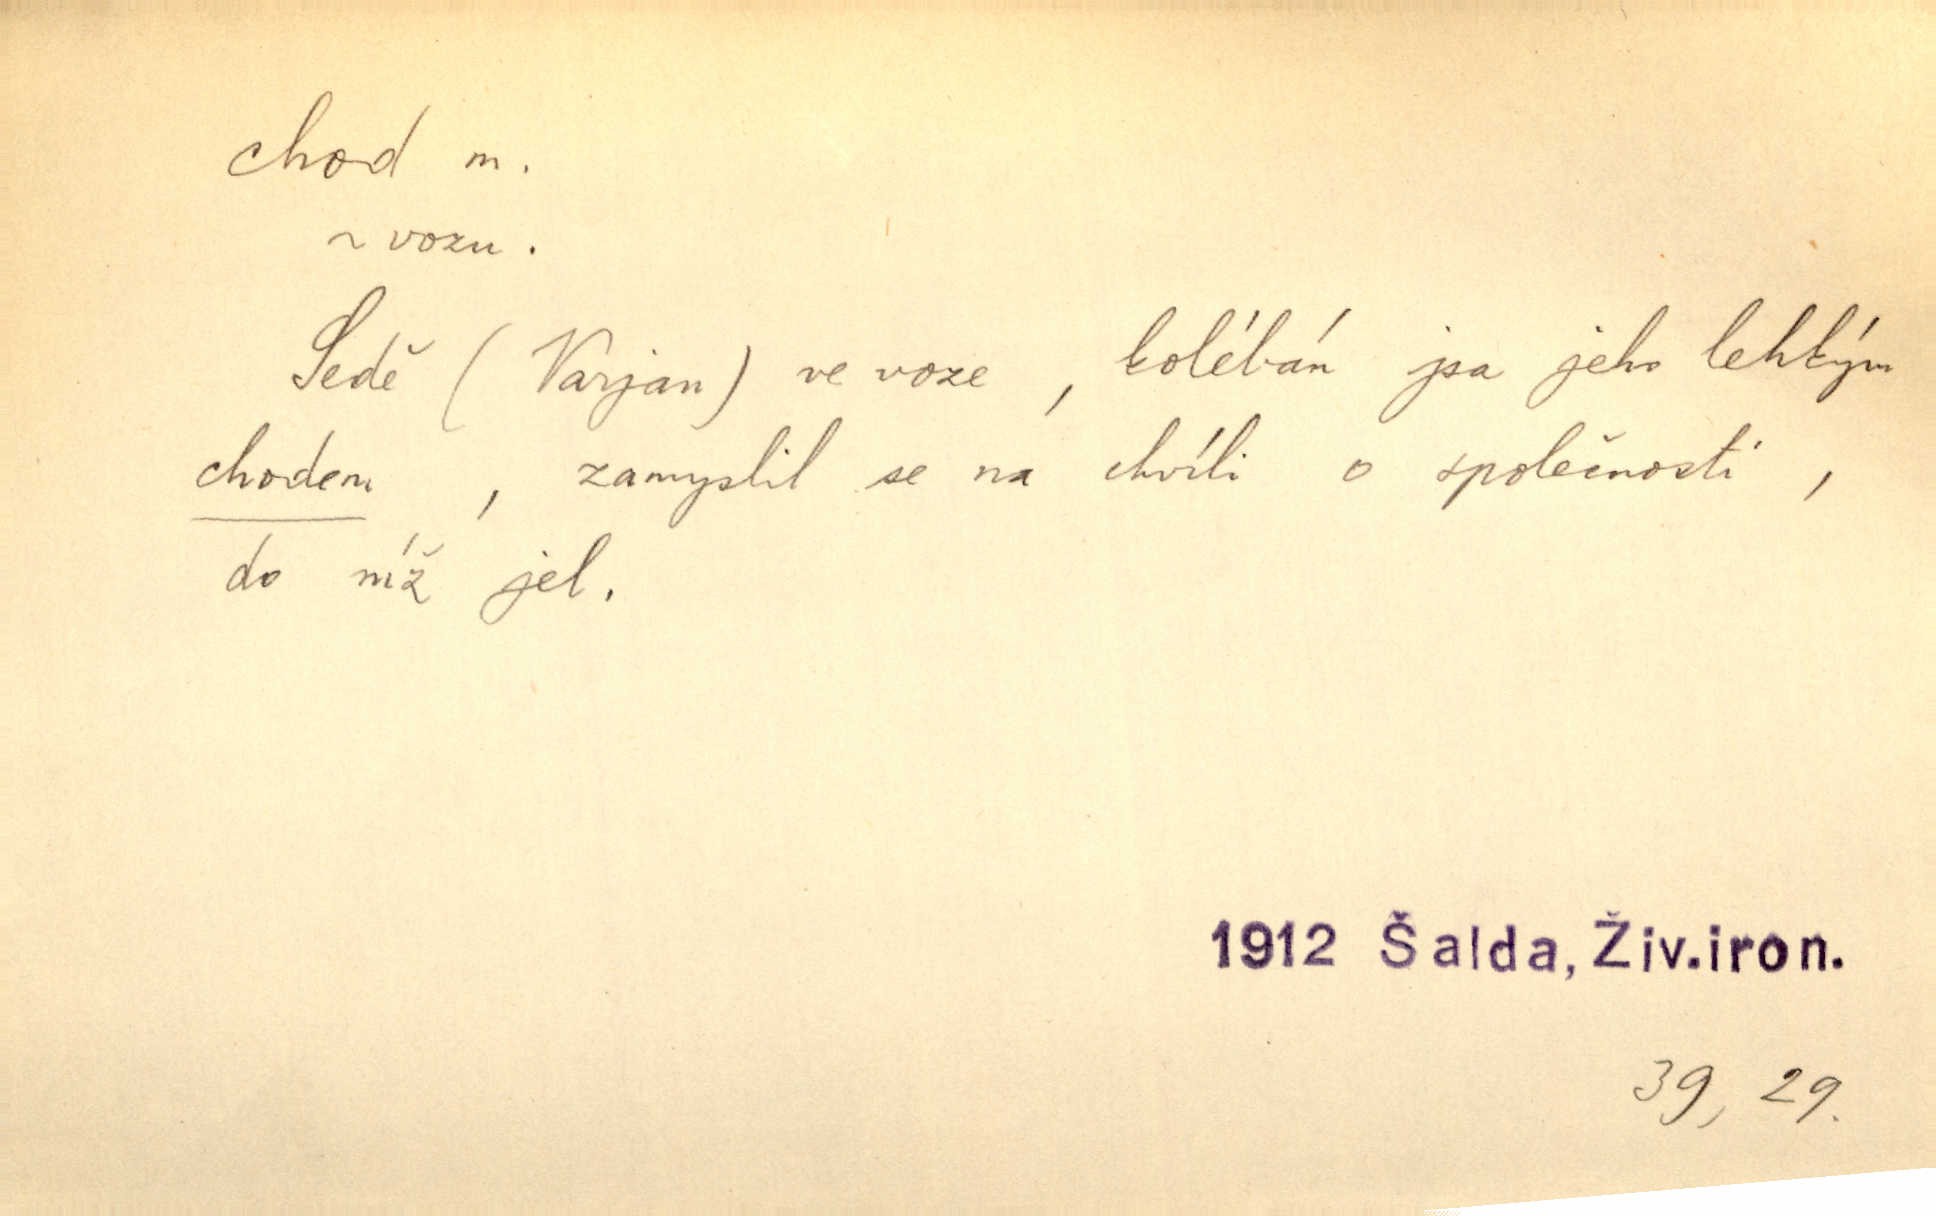 chod m.
~ vozu.
Sedě (Varjan) ve voze, kolébán jsa jeho lehkým
chodem, zamyslil se na chvíli o společnosti,
do níž jel.
1912 Šalda, Živ.iron.
39, 29.